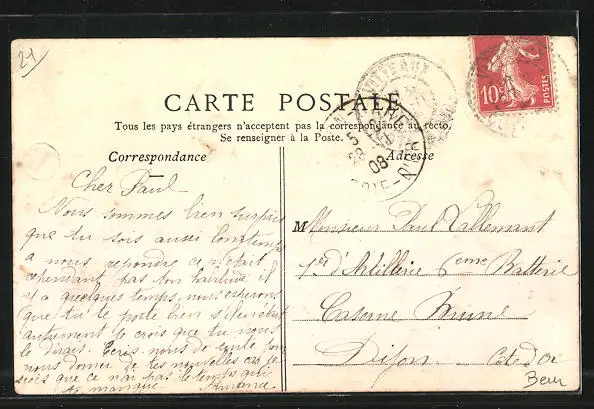 21
CARTE POSTALE
Tous les pays étrangers n'acceptent pas la correspondance au recto.
Se renseigner à la Poste.
Correspondance
Adresse
10c
POSTES
PUTEAUX
08
COTE-D'OR
Cher Paul
Nous sommes bien surpris
que tu sois aussi longtemps
a nous repondre ce n'etait
cependant pas ton habitude il
y a quelques temps, nous esperons
que tu te porte bien s'il en etait
autrement je crois que tu nous
le dirais. Ecris nous de suite pour
nous donner de tes nouvelles car je
sais que ce n'ai pas le temps qui
te manque
Monsieur Paul Vallemant
1er d'Artillerie 6eme Batterie
Caserne Brune
Dijon
Cote d'Or